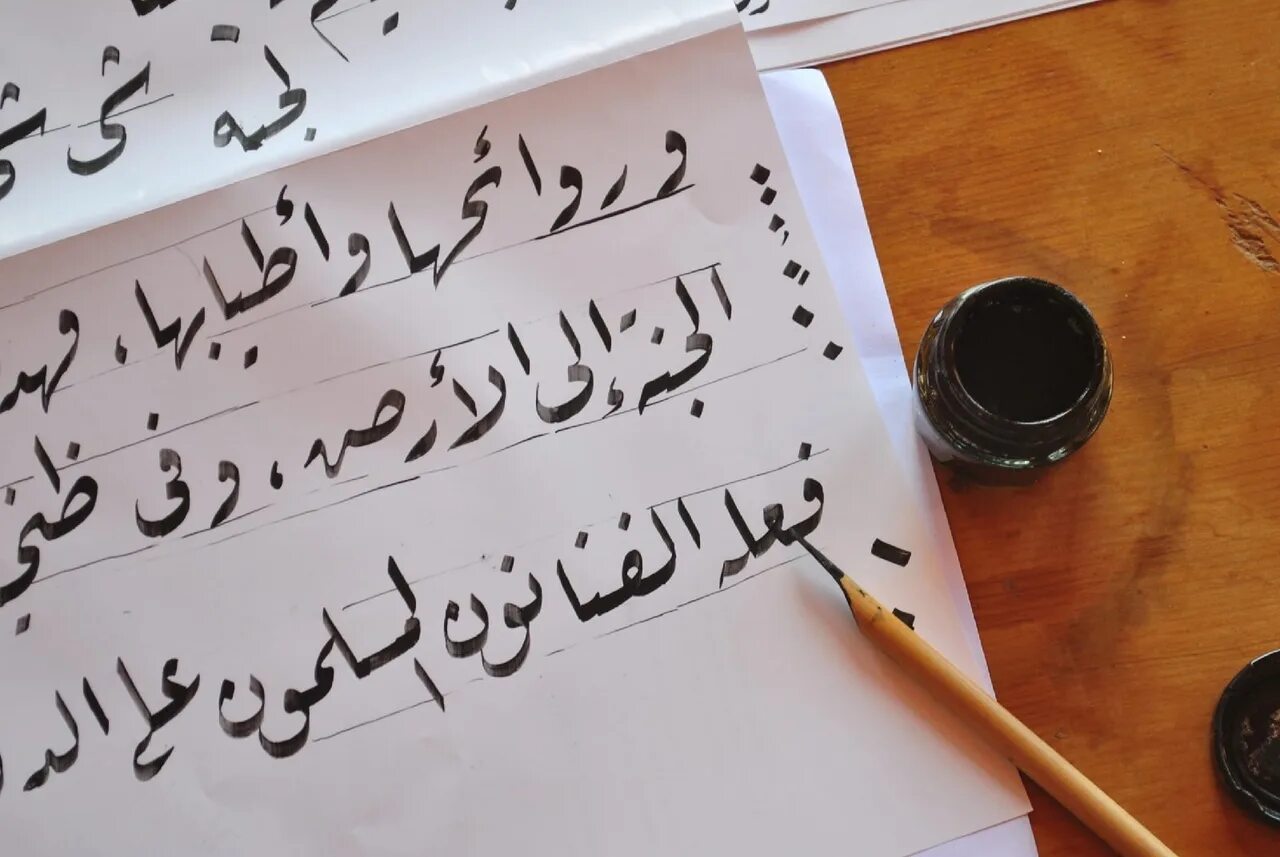 لجنة شئ
وروائحها وأطيابها، فهد
الجنة إلى الأرض، وفي ظني
فعله الفنانون المسلمون على الد